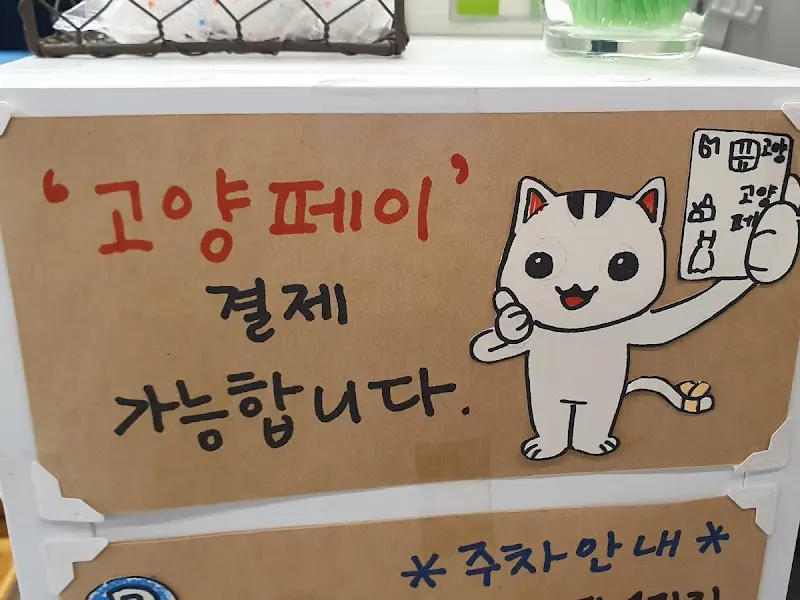 '고양페이'
결제
가능합니다.
고양
고양
페이
*주차안내*